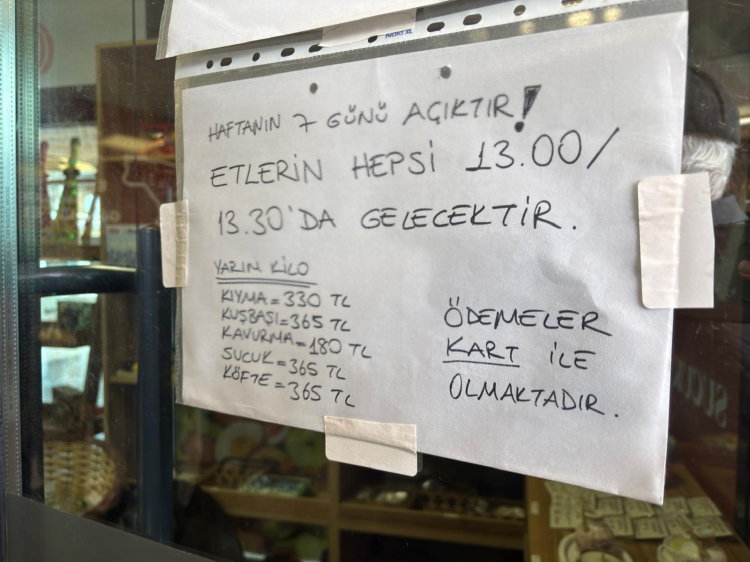 HAFTANIN 7 GÜNÜ AÇIKTIR!
ETLERİN HEPSİ 13.00/
13.30'DA GELECEKTİR.
YARIM KİLO
KIYMA=330 TL
KUŞBAŞI=365 TL
KAVURMA=180 TL
SUCUK=365 TL
KÖFTE=365 TL
ÖDEMELER
KART İLE
OLMAKTADIR.